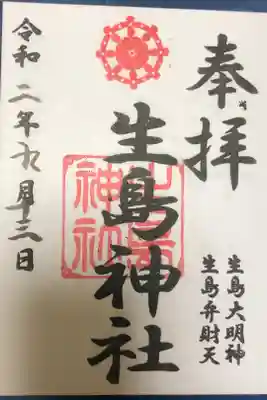 奉拝
生島大明神
生島弁財天
生島神社
令和二年九月十三日